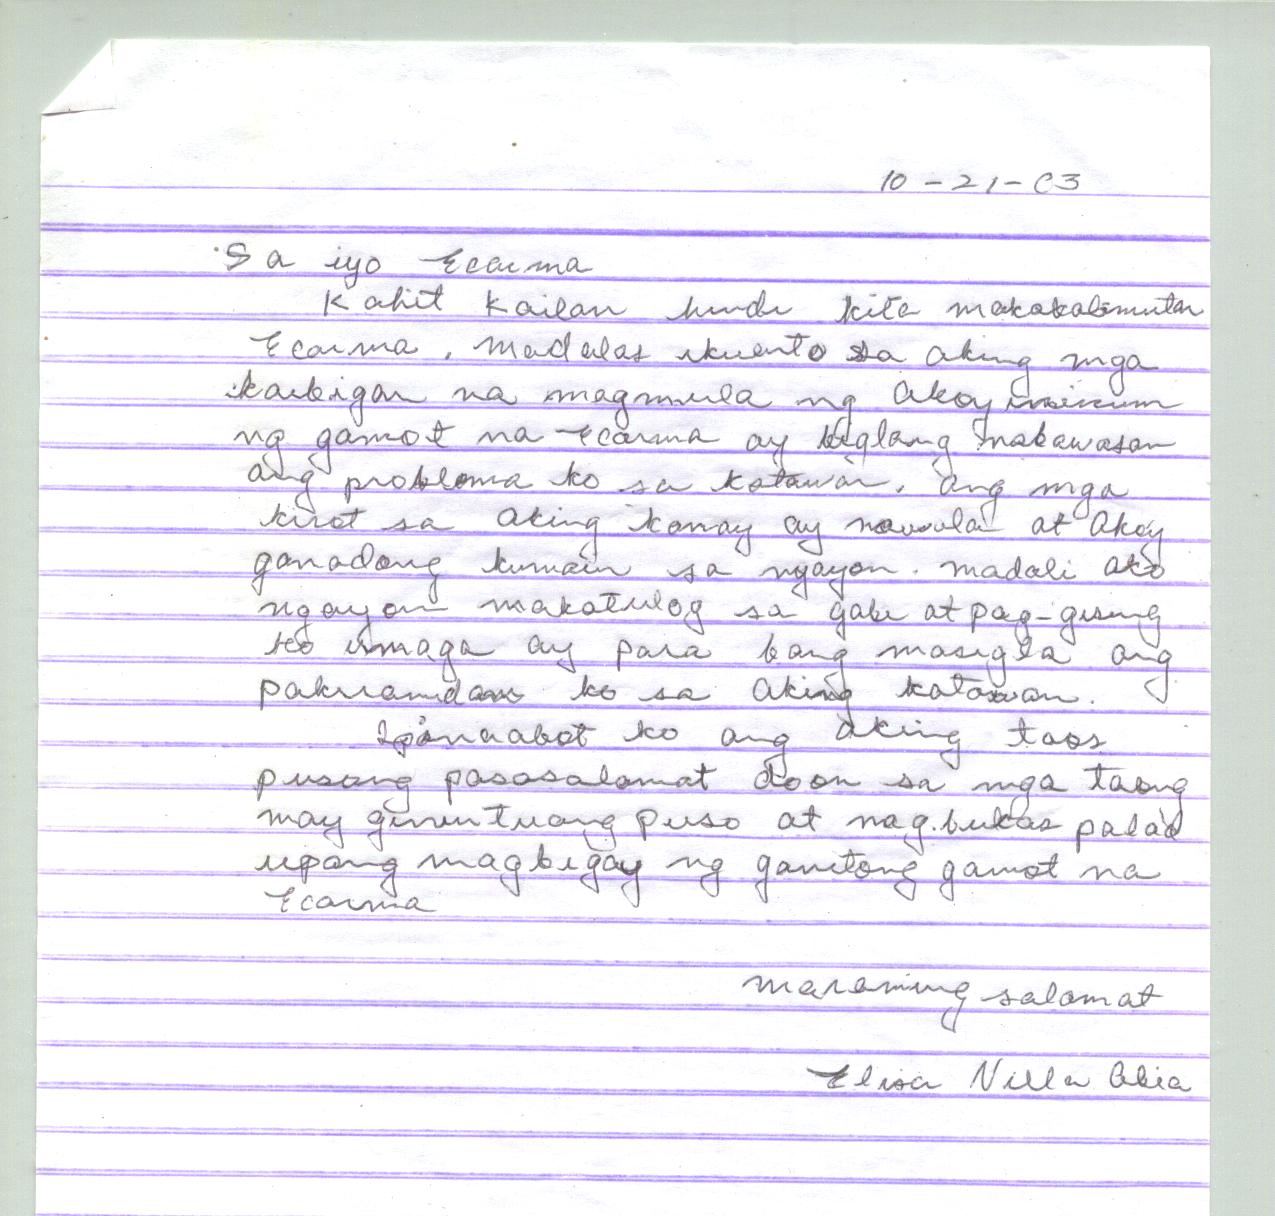 10-21-03
Sa iyo Ecarma
Kahit kailan hindi kita makakalimutan
Ecarma. Madalas ikuento sa aking mga
kaibigan na magmula ng Akoy uminum
ng gamot na Ecarma ay biglang nabawasan
ang problema ko sa katawan. Ang mga
kirot sa aking kamay ay nawula at Akoy
ganadong kumain sa ngayon. Madali ako
ngayon makatulog sa gabi at pag-gising
ko umaga ay para bang masigla ang
pakiramdam ko sa aking katawan.
Ipinaabot ko ang aking taos
pusong pasasalamat doon sa mga taong
may ginintuang puso at nag.bukas palad
upang magbigay ng ganitong gamot na
Ecarma
maraming salamat
Elisa Villa